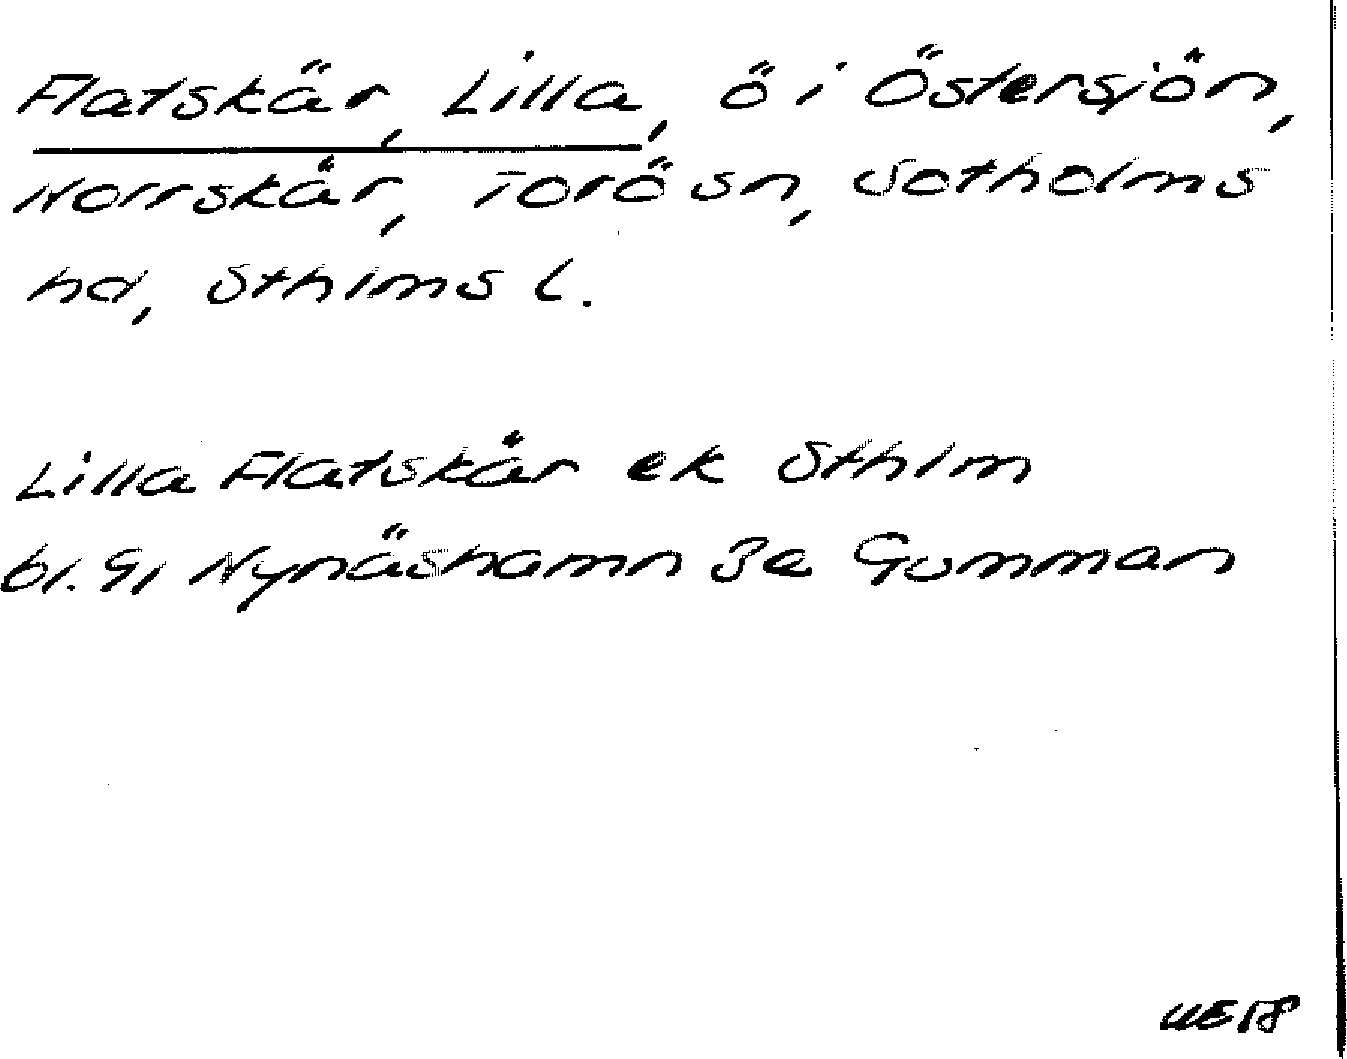 Flatskär, Lilla, ö i Östersjön,
Norrskär, Torö sn, Sotholms
hd, Sthlms l.
Lilla Flatskär ek Sthlm
bl. 91 Nynäshamn 3e Gumman